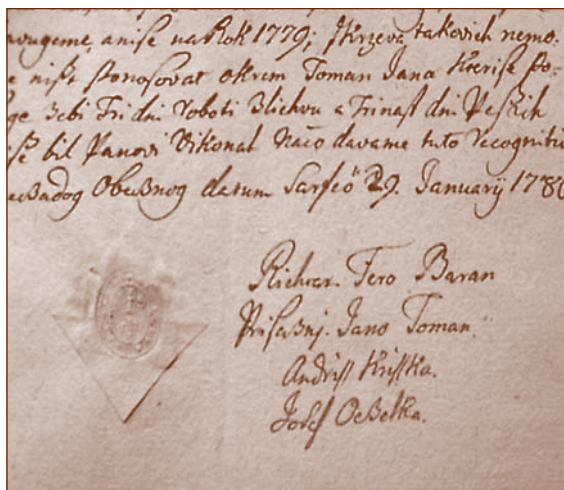 avugeme, aniſe na Rok 1779; Skrzeva takovich nemo-
e niſt ſtonoſovat okrem Toman Jana kteriſe ſto-
ge žebi Tri dni roboti Blichvu a Trinaſt dni Peſſich
iſſe bil Panovi Vikonal Načo davame tuto recognitio
Obecznog datum Sarfeö 29. Januarÿ 1780
Richtar. Fero Baran
Priſaznj. Jano Toman.
Andriſſ Kriſſka.
Joſef Oczelka.